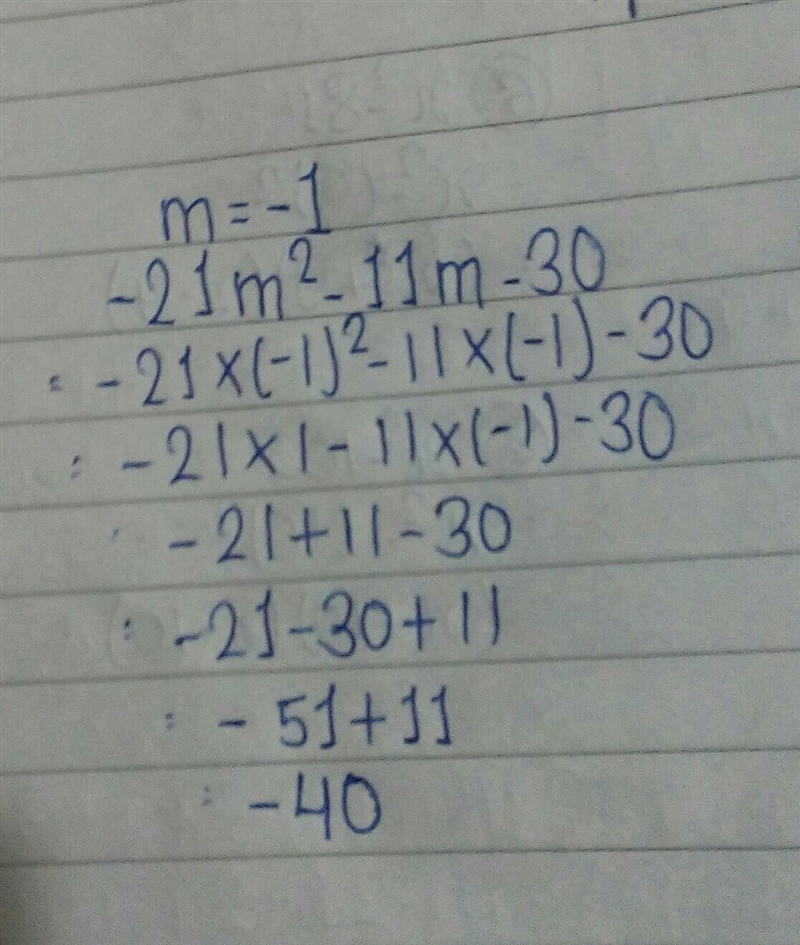 m = -1
-21m² - 11m - 30
= -21×(-1)² - 11×(-1) - 30
= -21×1 - 11×(-1) - 30
-21+11-30
= -21-30+11
= -51+11
= -40